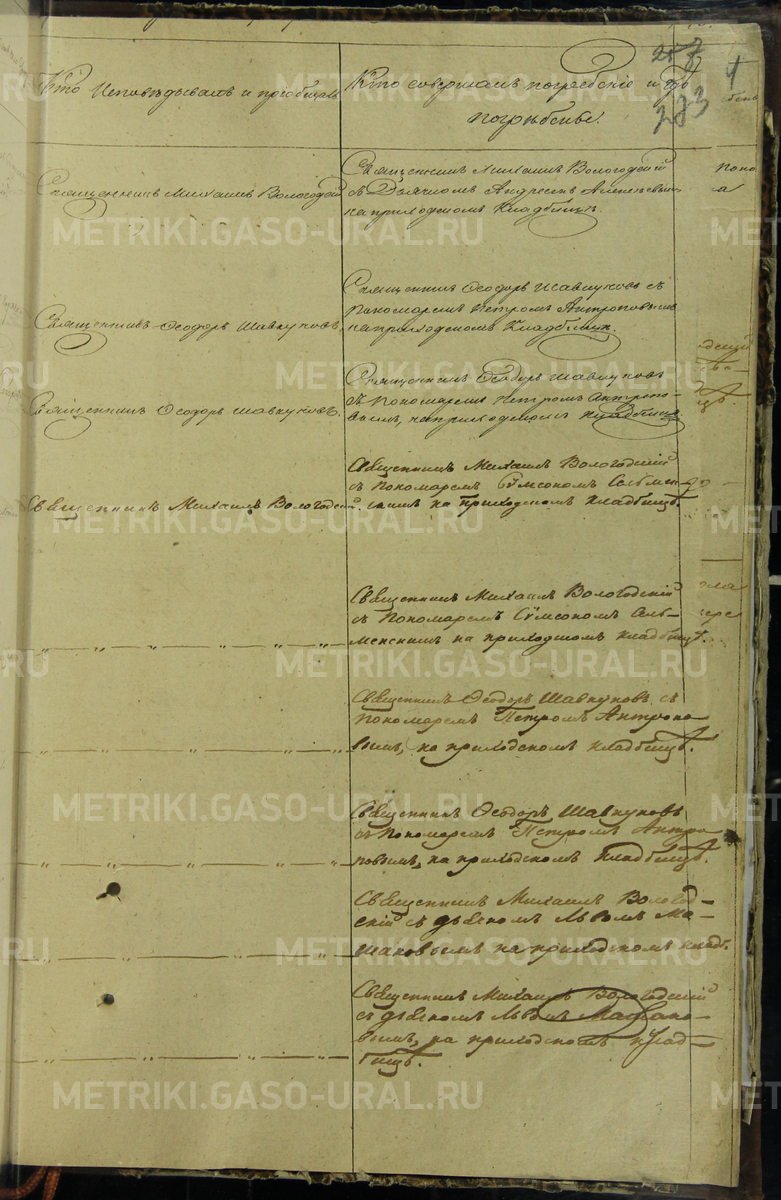 Кто исповѣдывалъ и пріобщалъ
Кто совершалъ погребеніе и гдѣ
погребены.
273
Священникъ Михаилъ Вологодскій
Священникъ Михаилъ Вологодскій
съ Дьячкомъ Андреемъ
на приходскомъ Кладбищѣ.
Священникъ Ѳеодоръ Шавкуновъ.
Священникъ Ѳеодоръ Шавкуновъ съ
Пономаремъ Петромъ Антроповымъ
на приходскомъ Кладбищѣ.
Священникъ Ѳеодоръ Шавкуновъ.
Священникъ Ѳеодоръ Шавкуновъ
съ Пономаремъ Петромъ Антропо-
вымъ, на приходскомъ кладбищѣ
Священникъ Михаилъ Вологодскій.
Священникъ Михаилъ Вологодскій
съ Пономаремъ Сѵмеономъ Сельмен-
скимъ на приходскомъ кладбищѣ.
Священникъ Михаилъ Вологодскій
съ Пономаремъ Сѵмеономъ Сель-
менскимъ на приходскомъ кладбищѣ.
Священникъ Ѳеодоръ Шавкуновъ съ
пономаремъ Петромъ Антропо-
вымъ, на приходскомъ кладбищѣ.
Священникъ Ѳеодоръ Шавкуновъ
съ Пономаремъ Петромъ Антро-
повымъ, на приходскомъ кладбищѣ.
Священникъ Михаилъ Вологод-
скій съ дьякономъ Львомъ Ма-
на приходскомъ кладб.
Священникъ Михаилъ Вологодскій
съ дьякономъ Львомъ
вымъ, на приходскомъ клад-
бищѣ.
METRIKI.GASO-URAL.RU